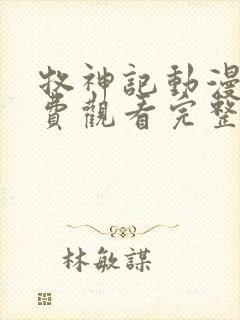 牧神記動漫
費觀看完整
林敏謀